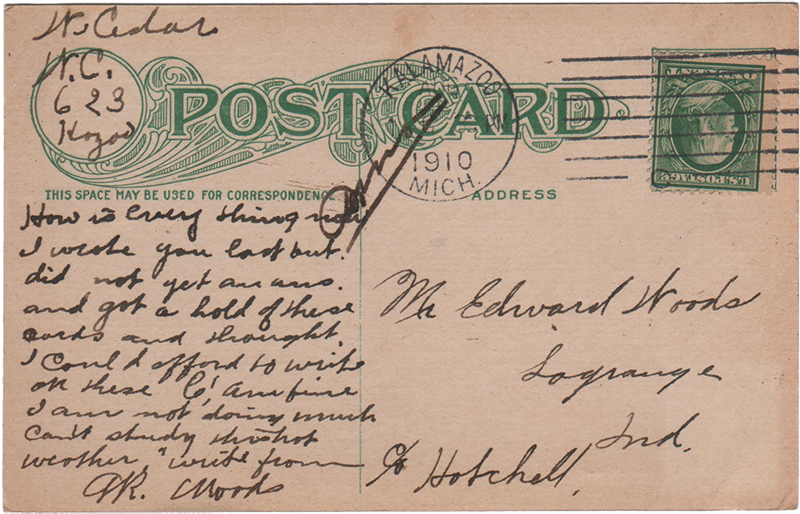 W. Cedar
W.C.
623
Kazoo
POST CARD
KALAMAZOO
1910
MICH.
THIS SPACE MAY BE USED FOR CORRESPONDENCE
ADDRESS
U.S. POSTAGE
How is every thing now
I wrote you last but.
did not get an ans.
and got a hold of these
cards and thought.
I could afford to write
on these Am fine
I am not doing much
can't study this hot
weather, " write from
R. Woods
Mr Edward Woods
Lagrange
Ind.
c/o Hotchell.